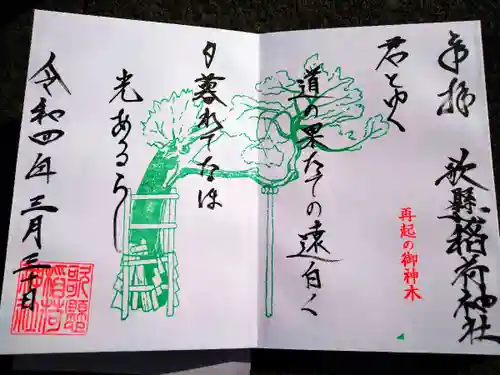 奉拝
歌懸稲荷神社
再起の御神木
君とゆく
道の果たての遠白く
夕暮れてなほ
光あるらし
令和四年三月三十日
歌懸
稲荷
神社